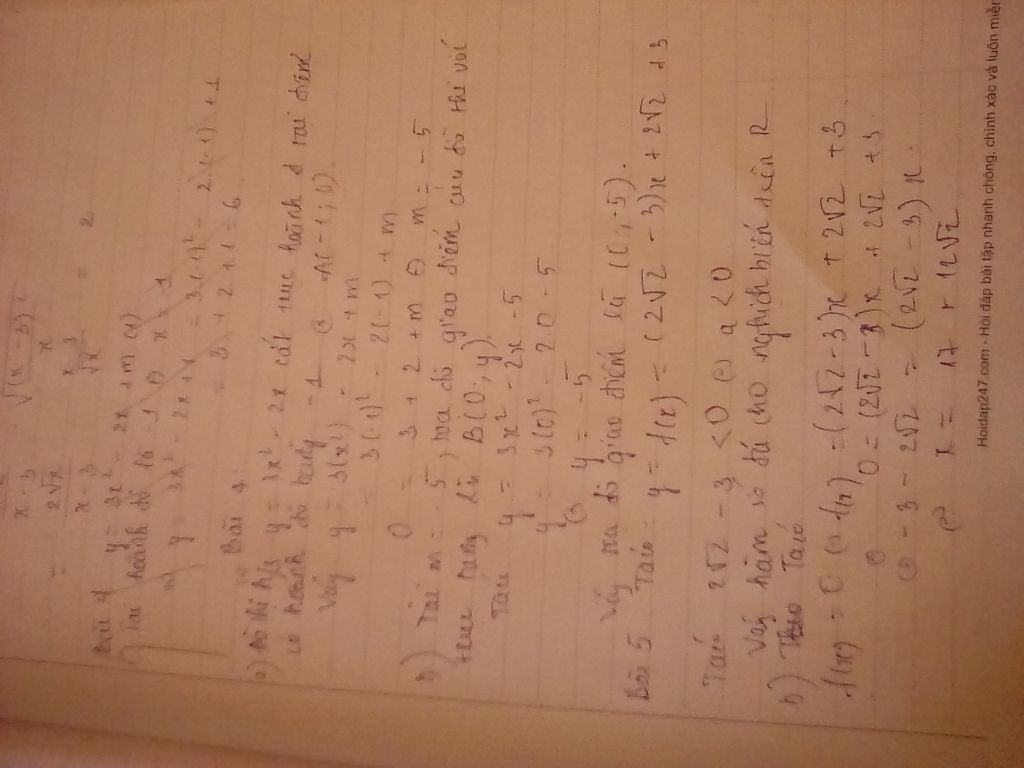 x - 3
√(x - 3)²
= 2√x x
x - 3 x - 3 = 2
√x
Bài 4 y = 3x² - 2x + m (1)
Tại hoành độ là -1 x = 1
y = 3x² - 2x + 1 = 3(-1)² - 2(-1) + 1
= 3 + 2 + 1 = 6
Bài 4
a) Đồ thị h/s y = 3x² - 2x cắt trục hoành tại điểm
có hoành độ bằng -1 A(-1; 0)
Vậy y = 3(x²) - 2x + m
= 3(-1)² - 2(-1) + m
0 = 3 + 2 + m m = -5
b) Tại m = -5, tọa độ giao điểm của đồ thị với
trục tung là B(0; y)
Ta có y = 3x² - 2x - 5
y = 3(0)² - 2.0 - 5
y = -5
Vậy tọa độ giao điểm là (0; -5).
Bài 5 Ta có: y = f(x) = (2√2 - 3)x + 2√2 + 3
Ta có 2√2 - 3 < 0 a < 0
Vậy hàm số đã cho nghịch biến trên R
b) Theo Ta có
f(x) = 0 f(x) = (2√2 - 3)x + 2√2 + 3
0 = (2√2 - 3)x + 2√2 + 3
-3 - 2√2 = (2√2 - 3)x
x = 17 + 12√2
Hoidap247.com - Hỏi đáp bài tập nhanh chóng, chính xác và luôn miễn